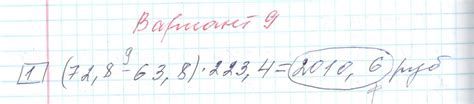 Вариант 9
1 (72,8 - 63,8) · 223,4 = 2010,6 руб
9